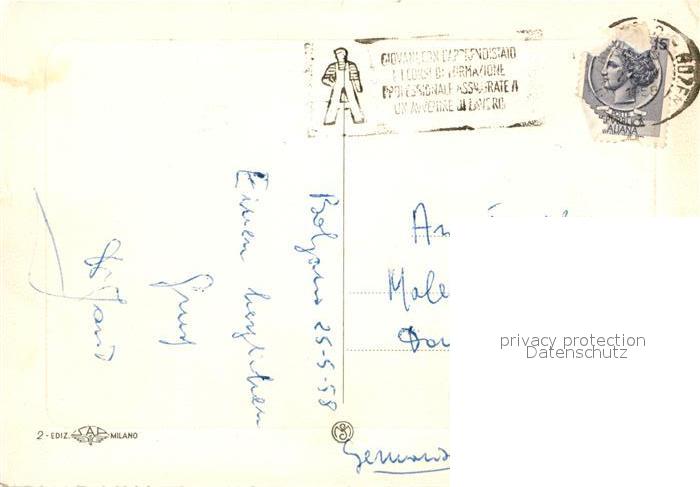 GIOVANI CON L'APPRENDISTATO
E I CORSI DI FORMAZIONE
PROFESSIONALE ASSICURATE A
UN AVVENIRE DI LAVORO
15
POSTE
REPUBBLICA
ITALIANA
Bolzano 25-5-58
Einen herzlichen
Gruß
An
Male
Dor
privacy protection
Datenschutz
2 - EDIZ. SAF MILANO